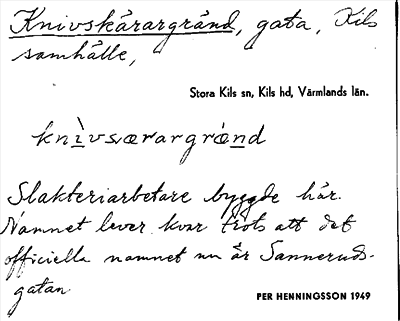 Knivskärargränd, gata, Kils
samhälle,
Stora Kils sn, Kils hd, Värmlands län.
knìvsærargrænd
Slakteriarbetare byggde här.
Namnet lever kvar trots att det
officiella namnet nu är Sanneruds-
gatan
PER HENNINGSSON 1949